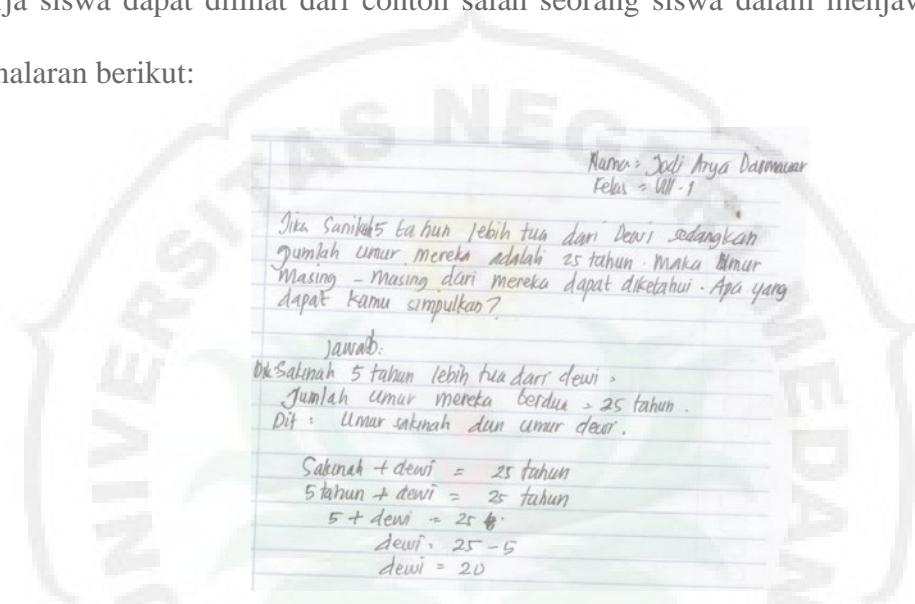 rja siswa dapat dilihat dari contoh salah seorang siswa dalam menjaw
nalaran berikut:
Nama: Jodi Arya Darmawar
Kelas = VIII - 1
Jika Sanikah 5 tahun lebih tua dari Dewi sedangkan
Jumlah umur mereka adalah 25 tahun. Maka Umur
Masing - Masing dari mereka dapat diketahui. Apa yang
dapat kamu simpulkan?
Jawab:
Dik Sakinah 5 tahun lebih tua dari dewi,
Jumlah umur mereka berdua = 25 tahun.
Dit: Umar sakinah dan umur dewi.
Sakinah + dewi = 25 tahun
5 tahun + dewi = 25 tahun
5 + dewi = 25
dewi = 25 - 5
dewi = 20
UNIVERSITAS NEGERI MEDAN